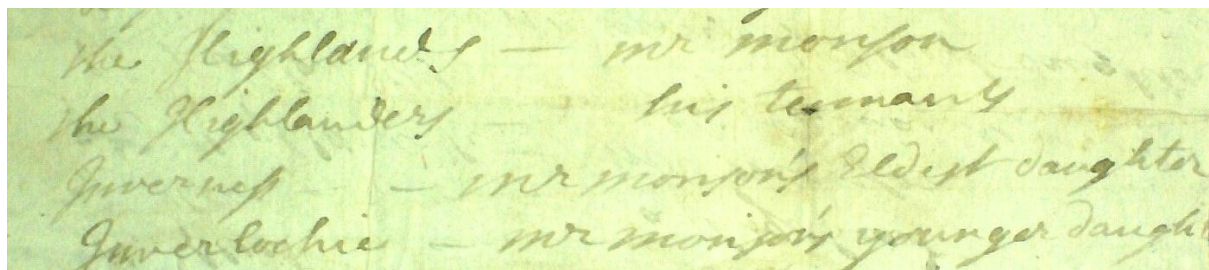 the Highlands — mr monson
the Highlanders — his tennants
Inverness — — mr monson's Eldest daughter
Inverlochie — mr monson's younger